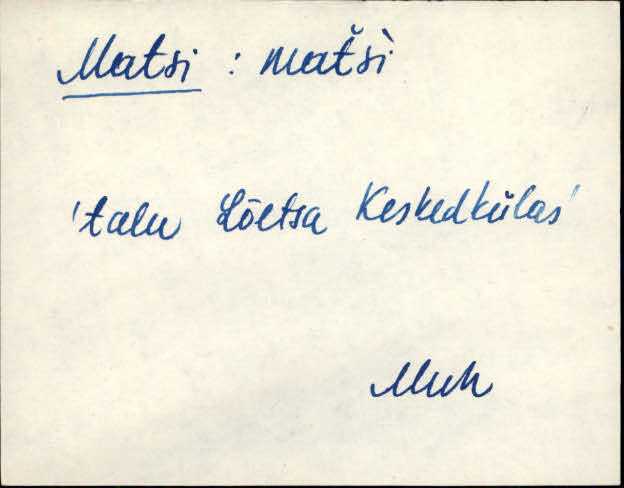 Matsi : mat̆s̀i
'talu Lõetsa Keskedkülas'
Muh